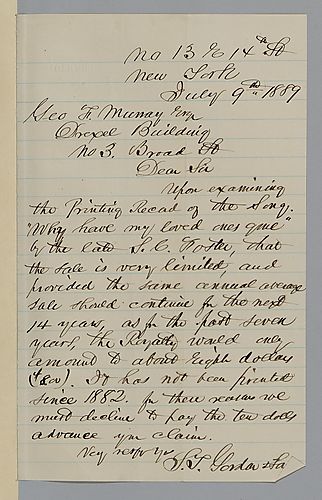 No 13 E 14th St
New York
July 9th 1889
Geo F. Murray Esq
Drexel Building
No 3. Broad St
Dear Sir
Upon examining
the Printing Record of the Song.
"Why have my loved ones gone"
by the late S. C. Foster, that
the sale is very limited, and
provided the same annual average
sale should continue for the next
14 years, as for the past seven
years, the Royalty would only
amount to about Eight dollars
($8.00). It has not been printed
since 1882. for these reasons we
must decline to pay the ten dolls
advance you claim.
Very respy yrs
S. T. Gordon & Son